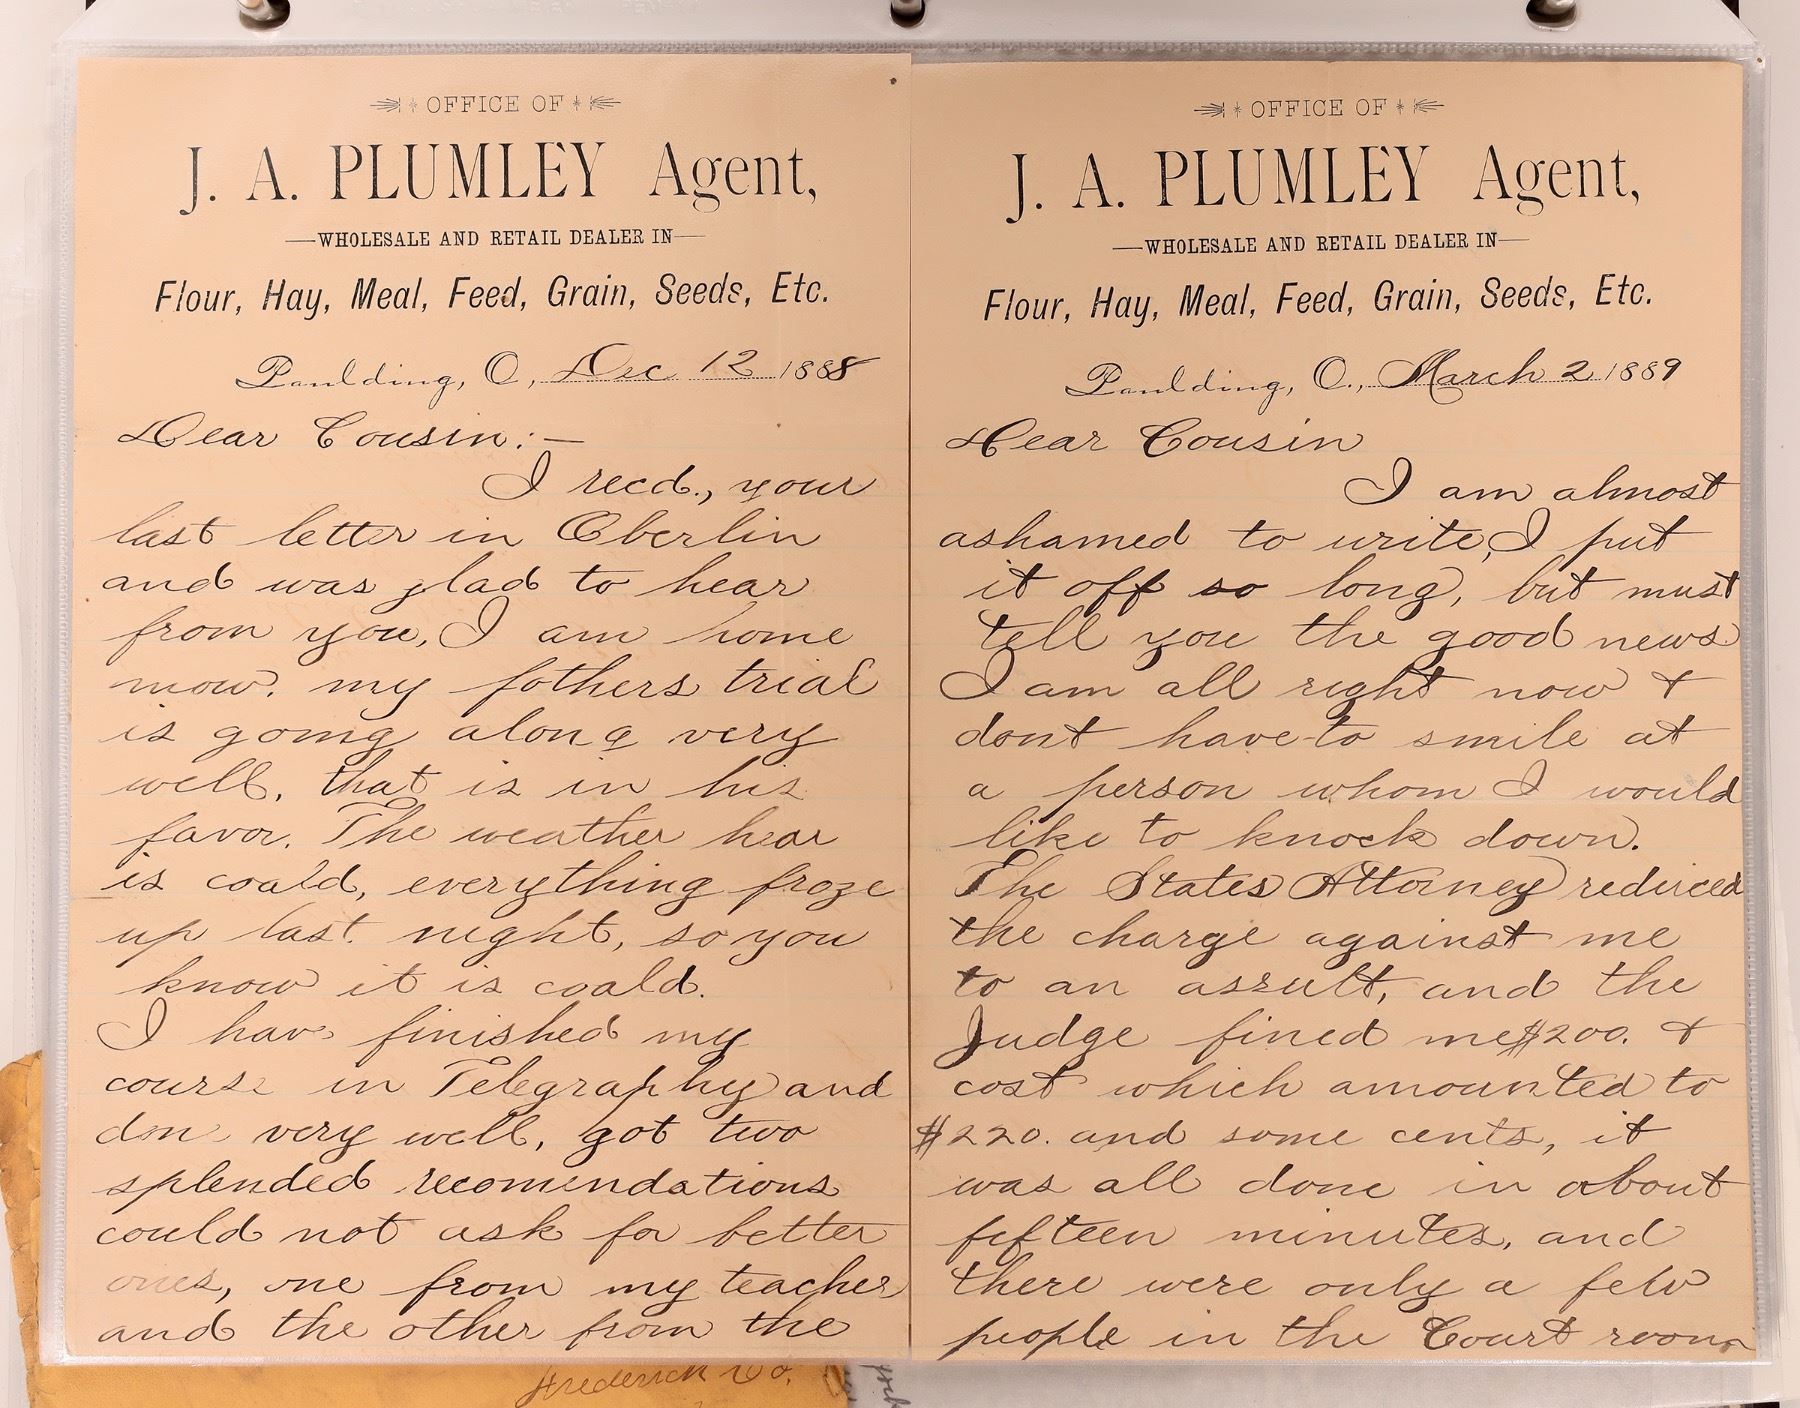 OFFICE OF
J. A. PLUMLEY Agent,
WHOLESALE AND RETAIL DEALER IN
Flour, Hay, Meal, Feed, Grain, Seeds, Etc.
Paulding, O., Dec 12 1888
Dear Cousin:—
I recd., your
last letter in Oberlin
and was glad to hear
from you, I am home
now. my fothers trial
is going along very
well, that is in his
favor. The weather hear
is coald, everything froze
up last night, so you
know it is coald.
I have finished my
course in Telegraphy and
done very well, got two
splended recomendations
could not ask for better
ones, one from my teacher
and the other from the
OFFICE OF
J. A. PLUMLEY Agent,
WHOLESALE AND RETAIL DEALER IN
Flour, Hay, Meal, Feed, Grain, Seeds, Etc.
Paulding, O., March 2 1889
Dear Cousin
I am almost
ashamed to write, I put
it off so long, but must
tell you the good news
I am all right now &
dont have to smile at
a person whom I would
like to knock down.
The States Attorney reduced
the charge against me
to an assult, and the
Judge fined me $200. &
cost which amounted to
$220. and some cents, it
was all done in about
fefteen minutes, and
there were only a few
people in the Court room
Frederick Co.